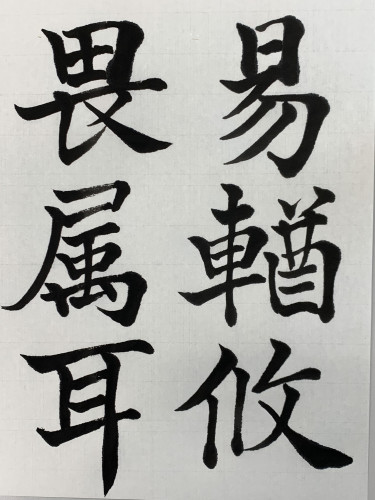 易輶攸
畏属耳